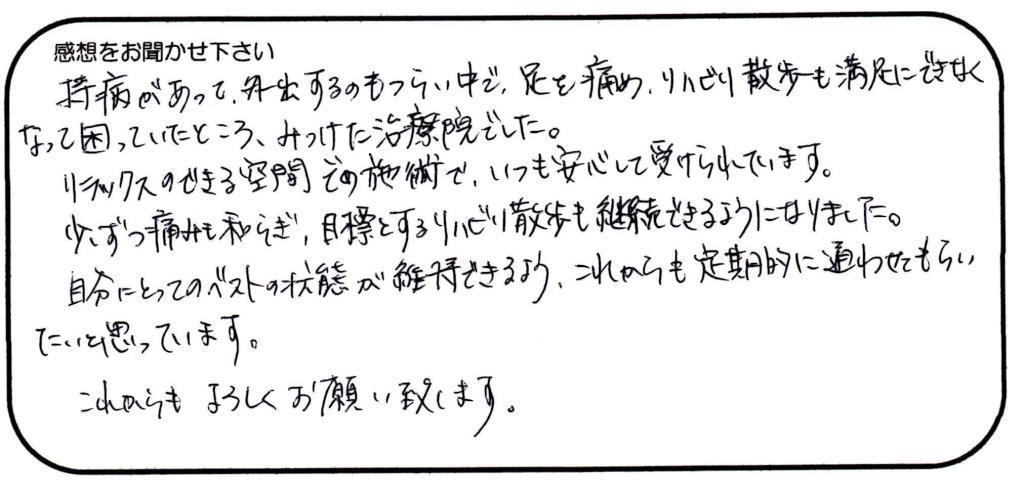 感想をお聞かせ下さい
持病があって、外出するのもつらい中で、足を痛め、リハビリ散歩も満足にできなく
なって困っていたところ、みつけた治療院でした。
リラックスのできる空間での施術で、いつも安心して受けられています。
少しずつ痛みも和らぎ、目標とするリハビリ散歩も継続できるようになりました。
自分にとってのベストの状態が維持できるよう、これからも定期的に通わせてもらい
たいと思っています。
これからも よろしくお願い致します。